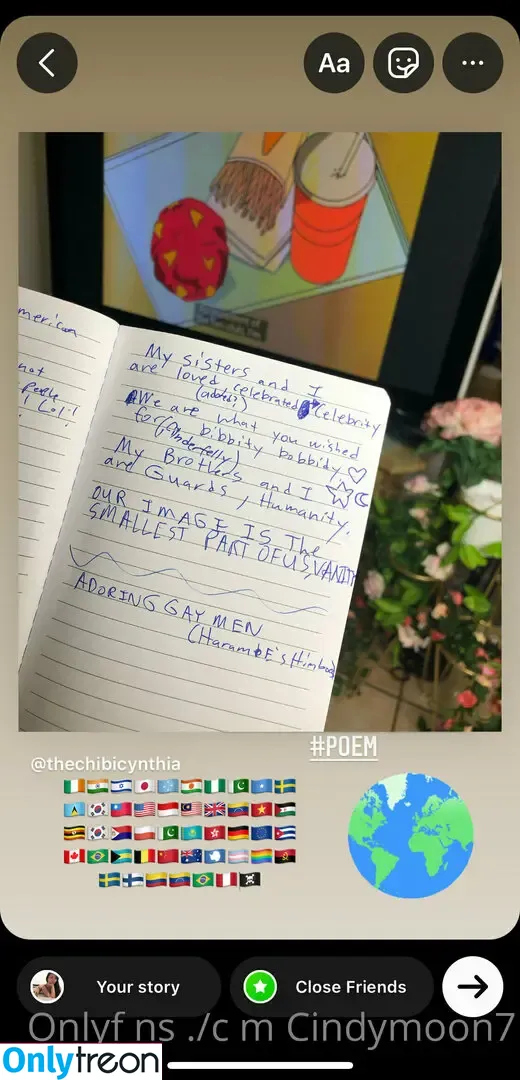 Aa
merican
not
people
! Lol!
My sisters and I
are loved, celebrated, Celebrity
We are what you wished
for, bibbity bobbidy ♡
My Brothers and I
are Guards, Humanity.
OUR IMAGE IS The
SMALLEST PART OF US, VANITY
ADORING GAY MEN
(HarambE's
#POEM
@thechibicynthia
Your story
Close Friends
Onlyf ns ./c m Cindymoon7
Onlytreon